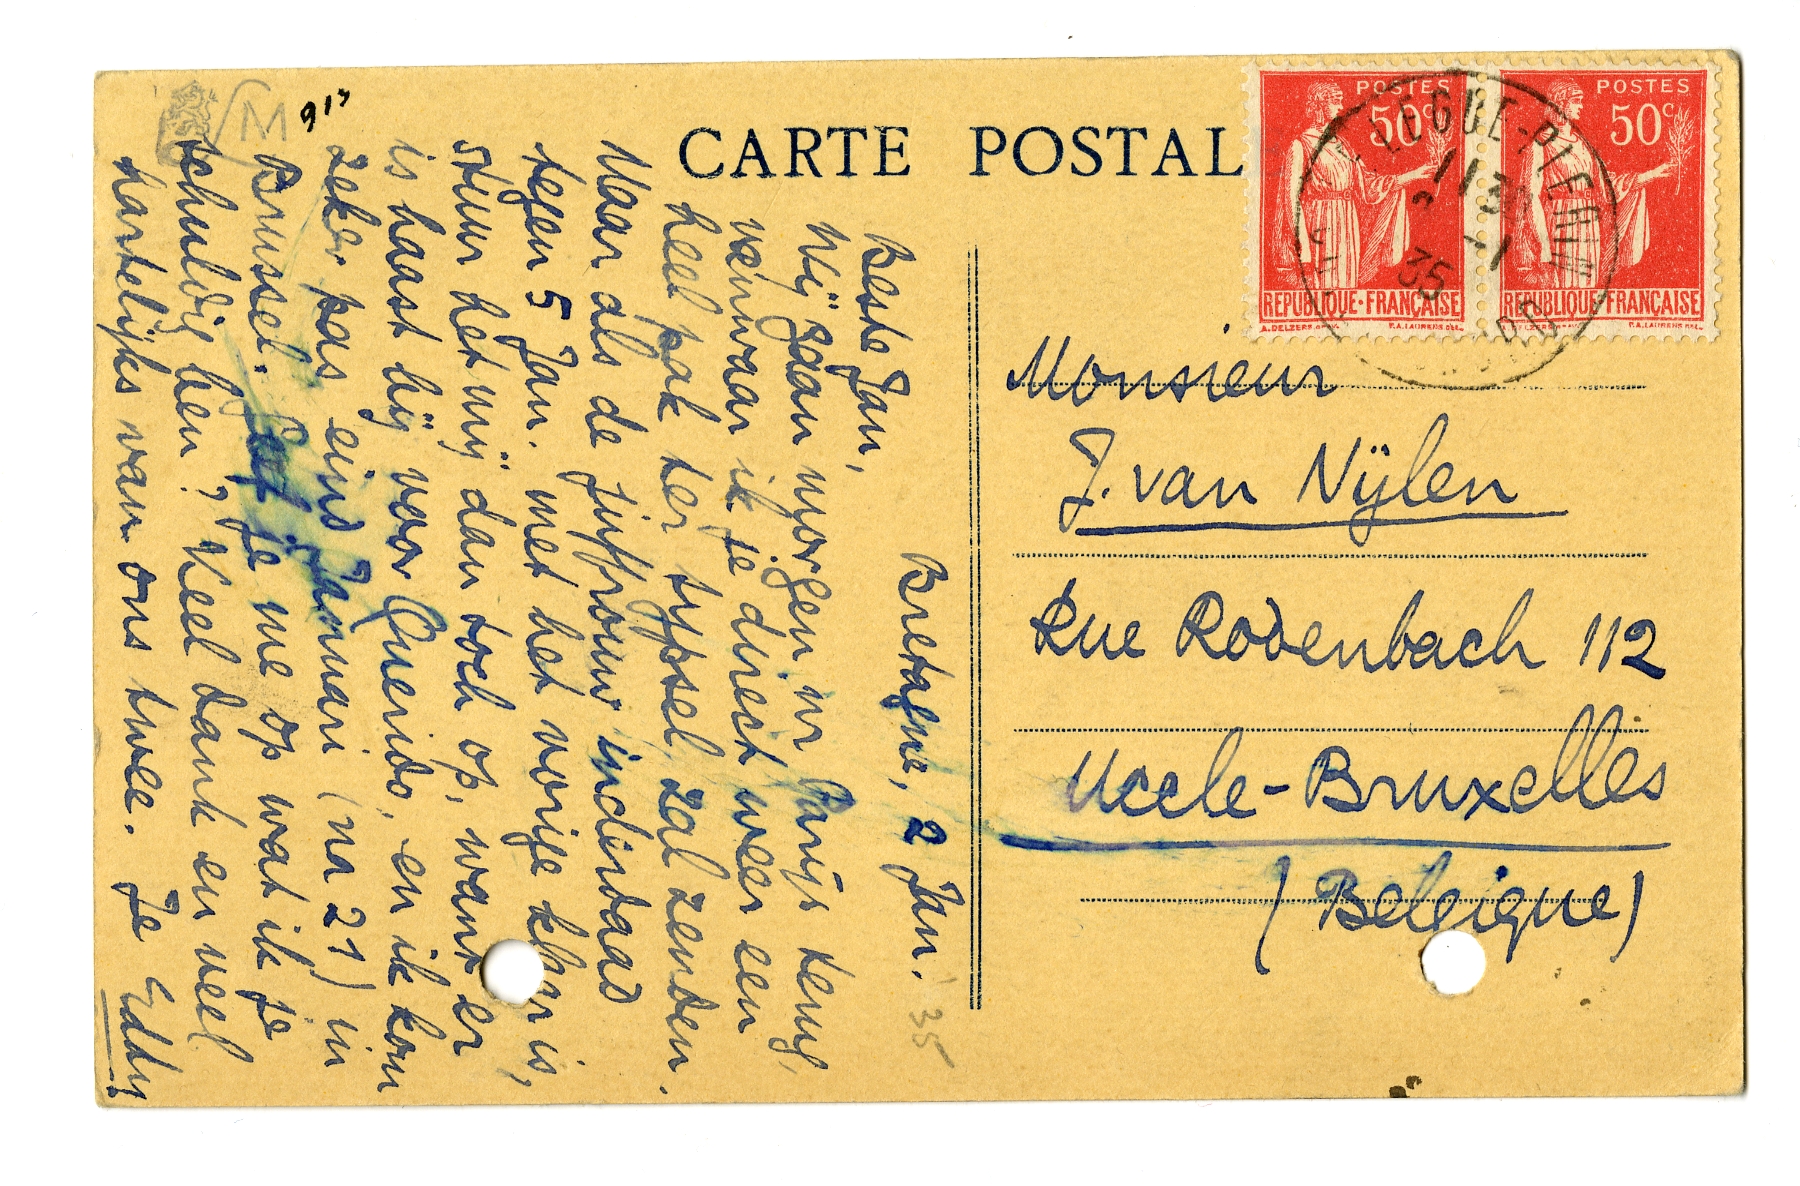 CARTE POSTAL
POSTES
50c
REPUBLIQUE·FRANÇAISE
POSTES
50c
REPUBLIQUE FRANÇAISE
1130
2 -1
35
Bretagne, 2 Jan. '35
Beste Jan,
Wij gaan morgen nr Parijs terug,
vanwaar ik je direct weer een
heel pak ter typsel zal zenden.
Maar als de juffrouw inderdaad
tegen 5 Jan. met het vorige klaar is,
stuur het mij dan toch op, want er
is haast bij voor Querido, en ik kom
zeker pas eind Januari (na 21) in
Brussel. Geef je me op wat ik je
schuldig ben? Veel dank en veel
hartelijks van ons twee. Je Eddy
Monsieur
J. van Nijlen
Rue Rodenbach 112
Uccle-Bruxelles
(Belgique)
M